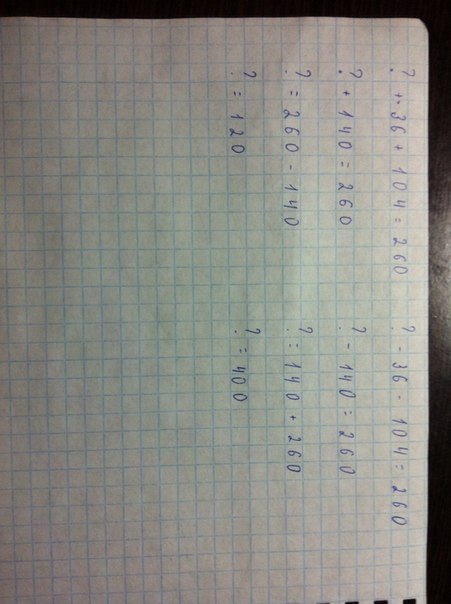 ? + 36 + 104 = 260
? + 140 = 260
? = 260 - 140
? = 120
? - 36 - 104 = 260
? - 140 = 260
? = 140 + 260
? = 400